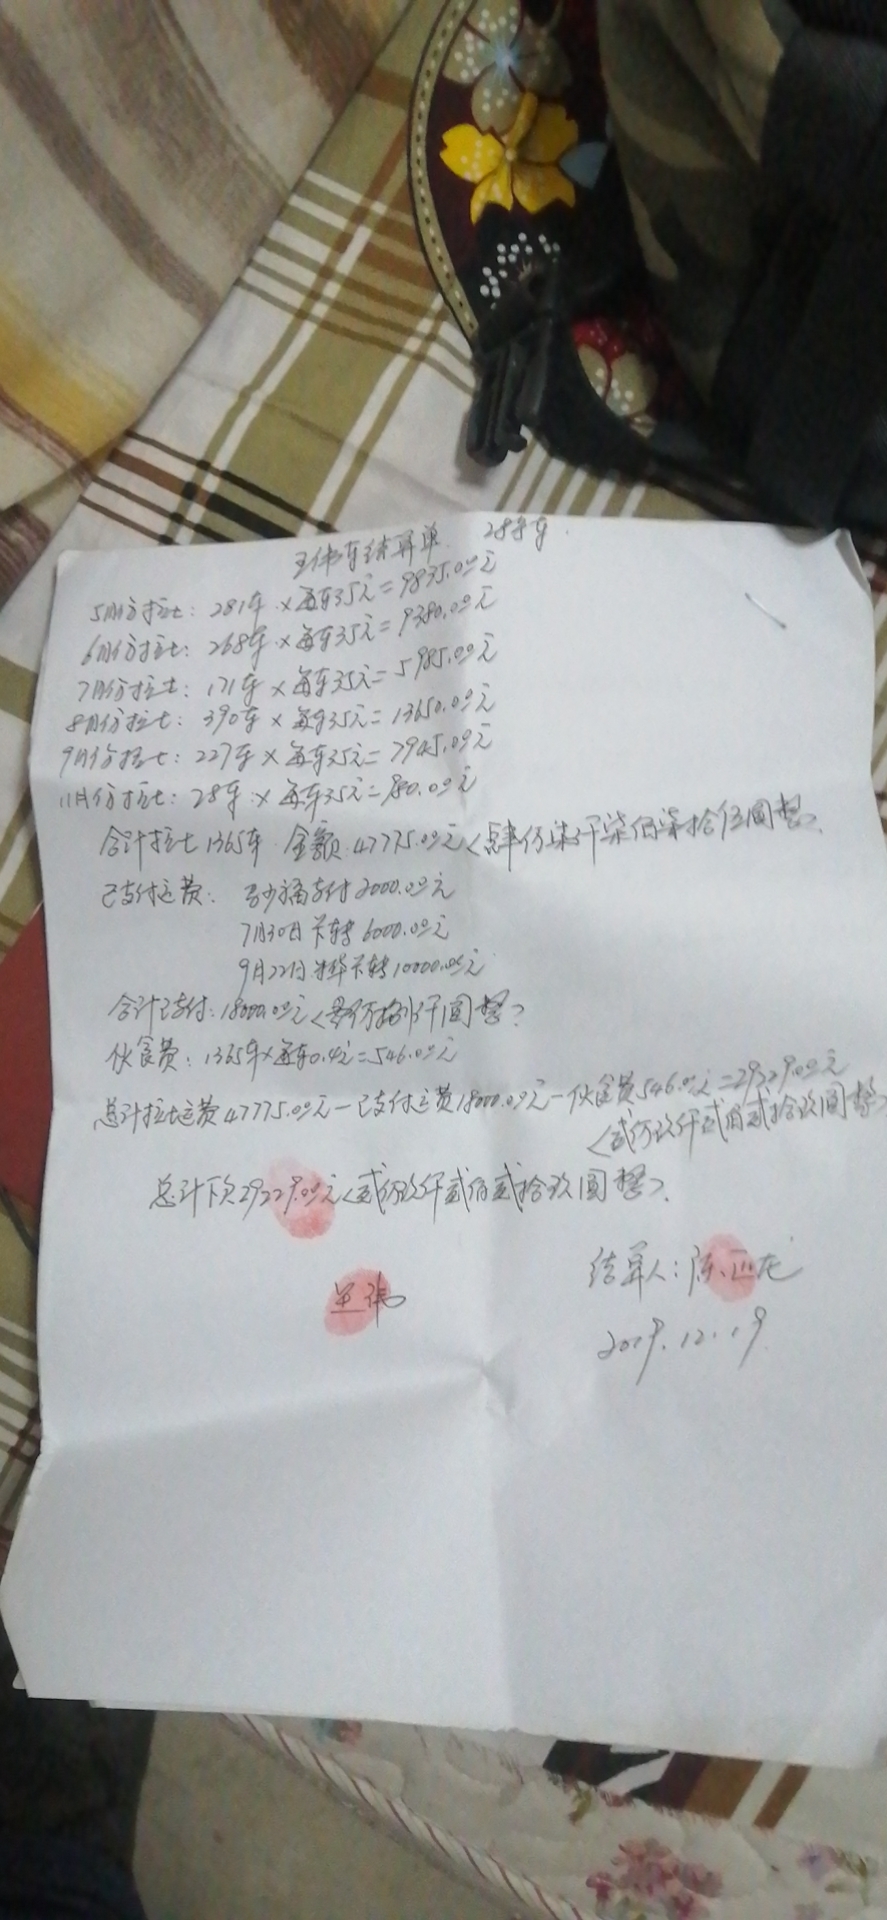 王伟车结算单 28号车
5月份拉土:281车×每车35元=9835.00元
6月份拉土:268车×每车35元=9380.00元
7月份拉土:171车×每车35元=5985.00元
8月份拉土:390车×每车35元=13650.00元
9月份拉土:227车×每车35元=7945.00元
11月份拉土:28车×每车35元=980.00元
合计拉土1365车 金额:47775.00元<肆仟柒仟柒佰柒拾伍圆整>
已支付运费: 支付2000.00元
7月30日卡转6000.00元
9月22日 卡转10000.00元
合计已支付:18000.00元< 圆整>
伙食费:1365车×每车0.4元=546.00元
总计拉土运费47775.00元-已支付运费18000.00元-伙食费546.00元=29229.00元
<贰仟玖仟贰佰贰拾玖圆整>
总计下欠29229.00元<贰仟玖仟贰佰贰拾玖圆整>
结算人:陈匹龙
王伟
2019.12.19